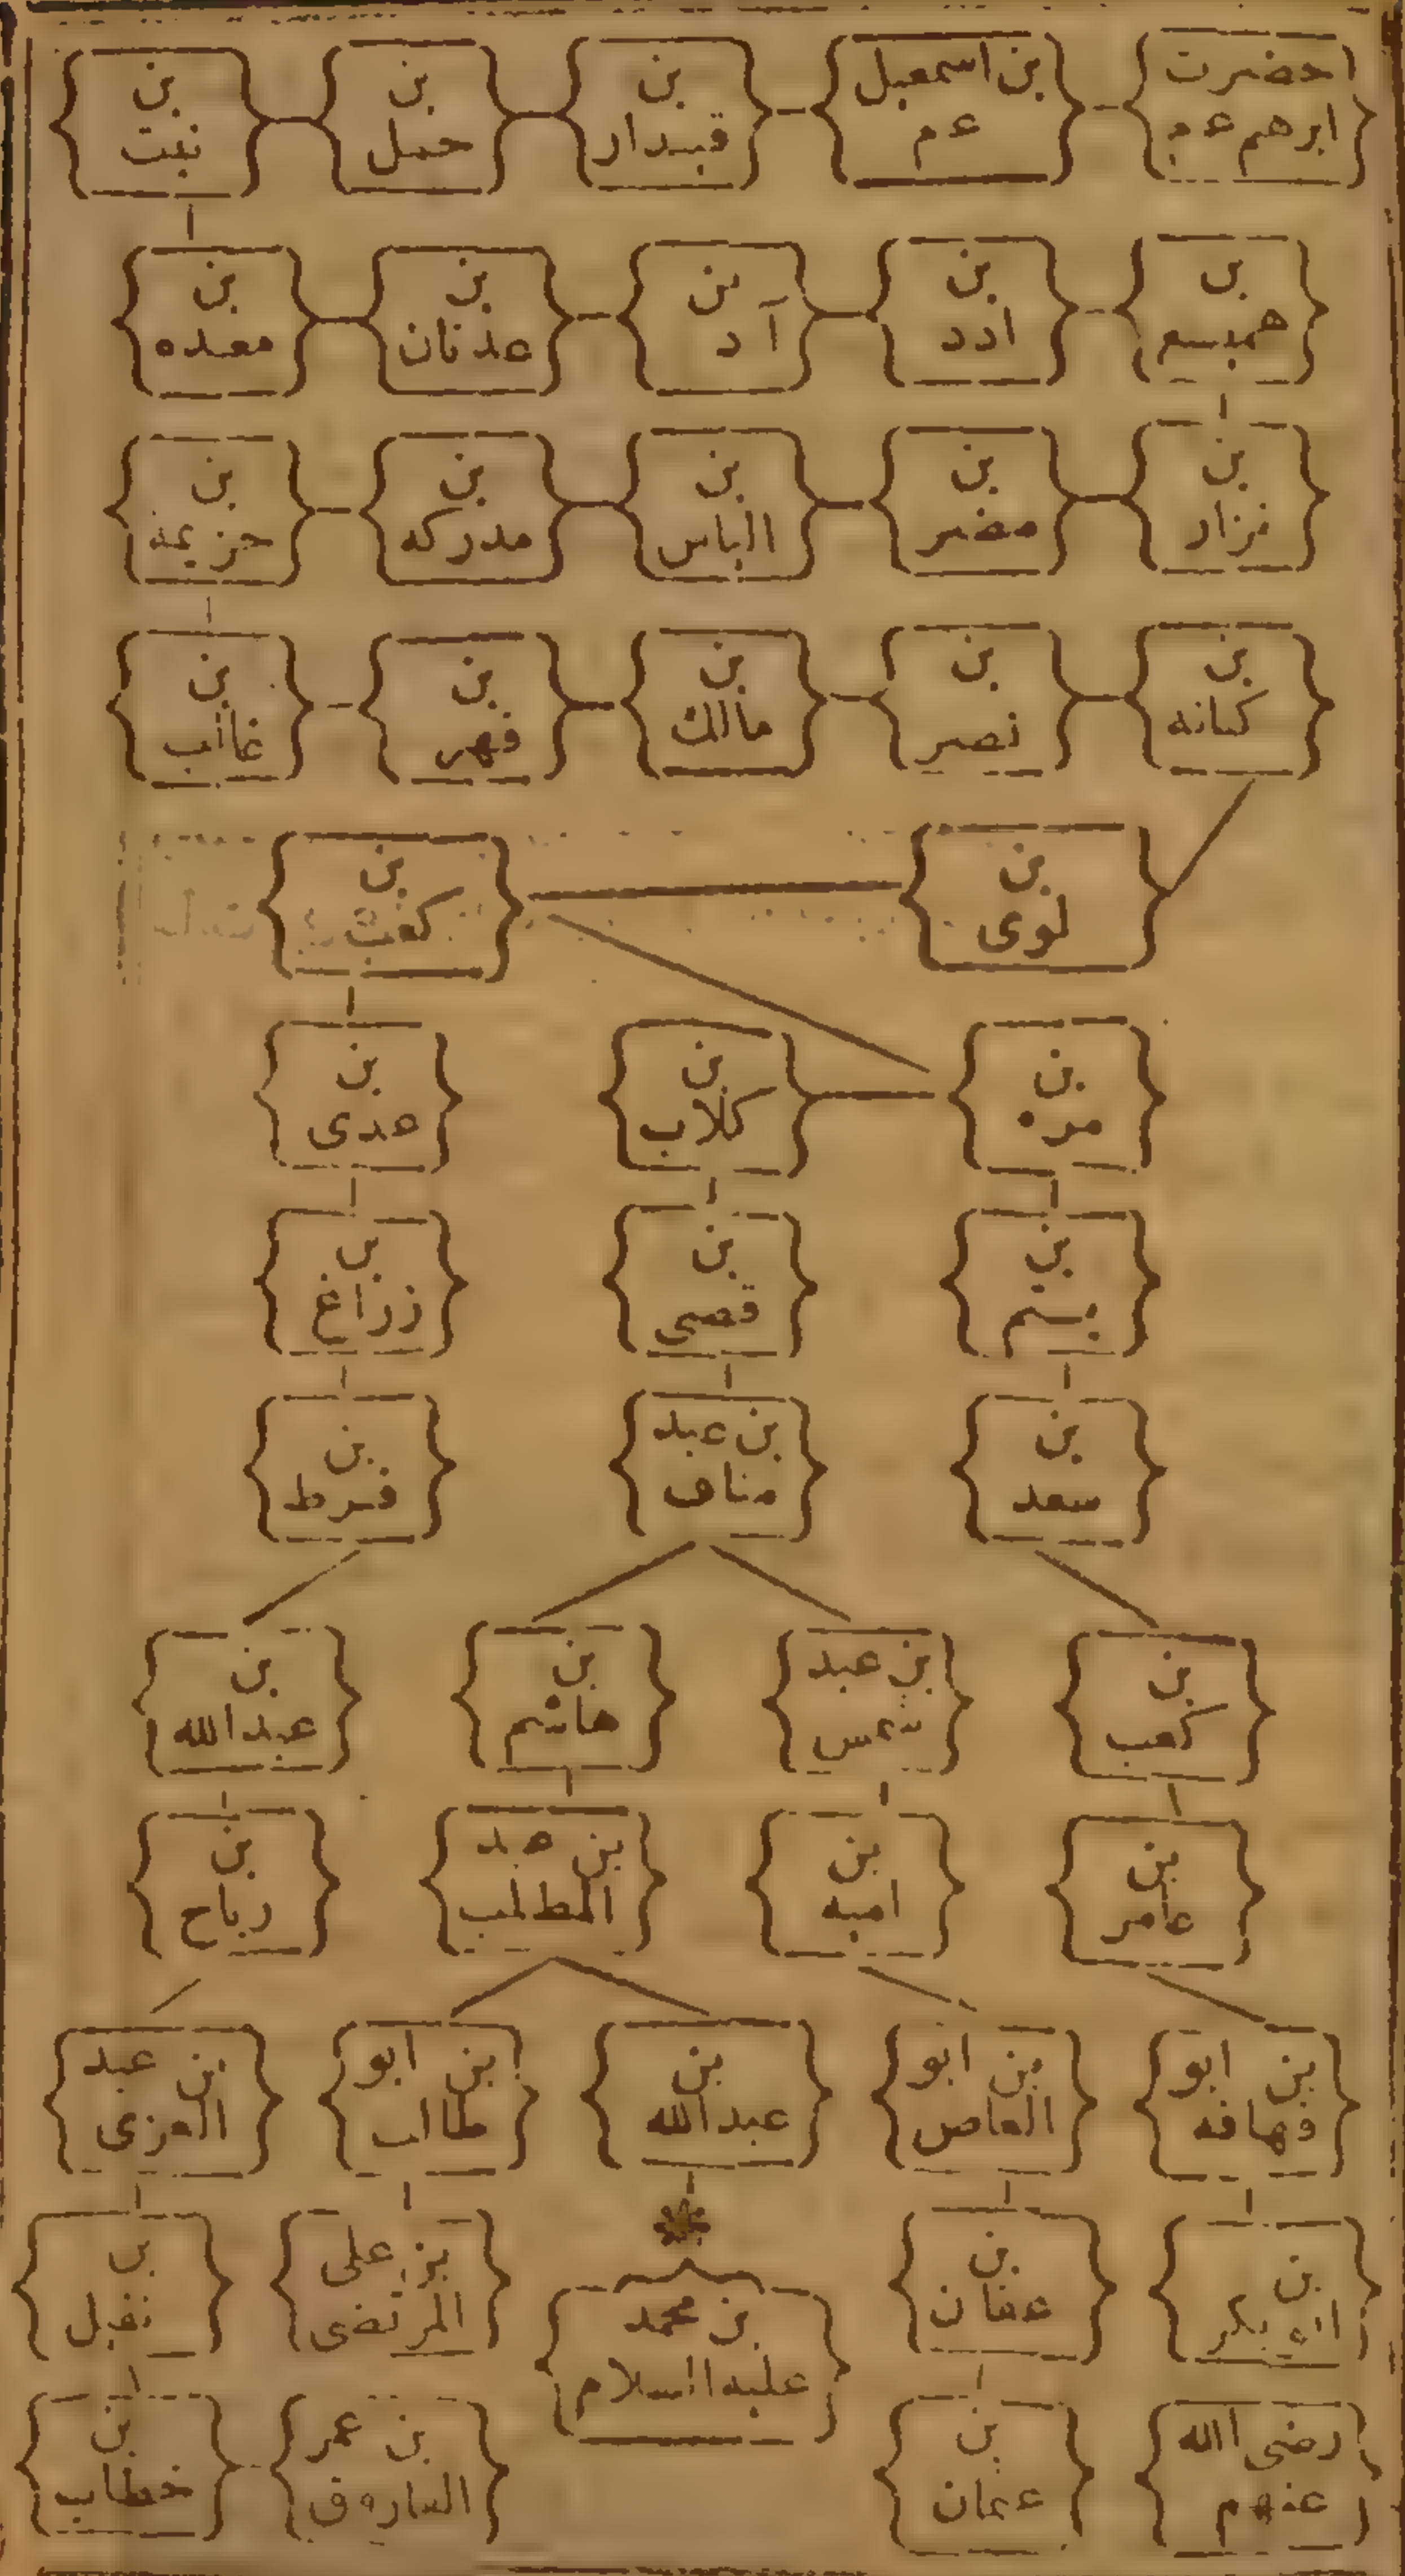 حضرت
ابرهم عم
بن اسمعیل
عم
بن
قیدار
بن
حمل
بن
نبت
بن
همیسع
بن
ادد
بن
آد
بن
عدنان
بن
معده
بن
نزار
بن
مضر
بن
الیاس
بن
مدرکه
بن
خزیمه
بن
کنانه
بن
نصر
بن
مالك
بن
فهر
بن
غالب
بن
لوی
بن
کعب
بن
مره
بن
کلاب
بن
عدی
بن
بن
قصی
بن
زراغ
بن
سعد
بن عبد
مناف
بن
قرط
بن
کعب
بن عبد
شمس
بن
هاشم
بن
عبدالله
بن
عامر
بن
امیه
بن عبد
المطلب
بن
رباح
بن ابو
قهافه
بن ابو
العاص
بن
عبدالله
بن ابو
طالب
بن عبد
العزی
بن
ابوبکر
بن
عفان
بن محمد
علیه السلام
بن علی
المرتضی
بن
نفیل
رضی الله
عنهم
بن
عثمان
بن عمر
الفاروق
بن
خطاب